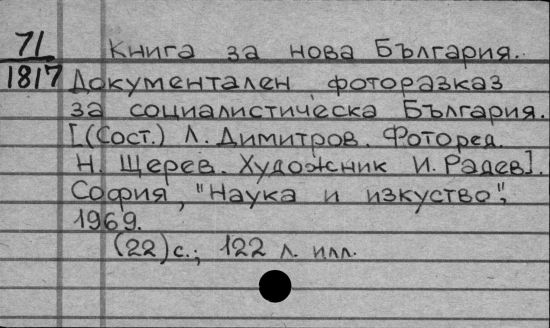 71 Книга за нова България.
1817 Документален фоторазказ
за социалистическа България.
[(Сост.) Л. Димитров. Фоторед.
Н. Щерев. Художник И. Радев].
София, "Наука и изкуство",
1969.
(22)с.; 122 л. илл.